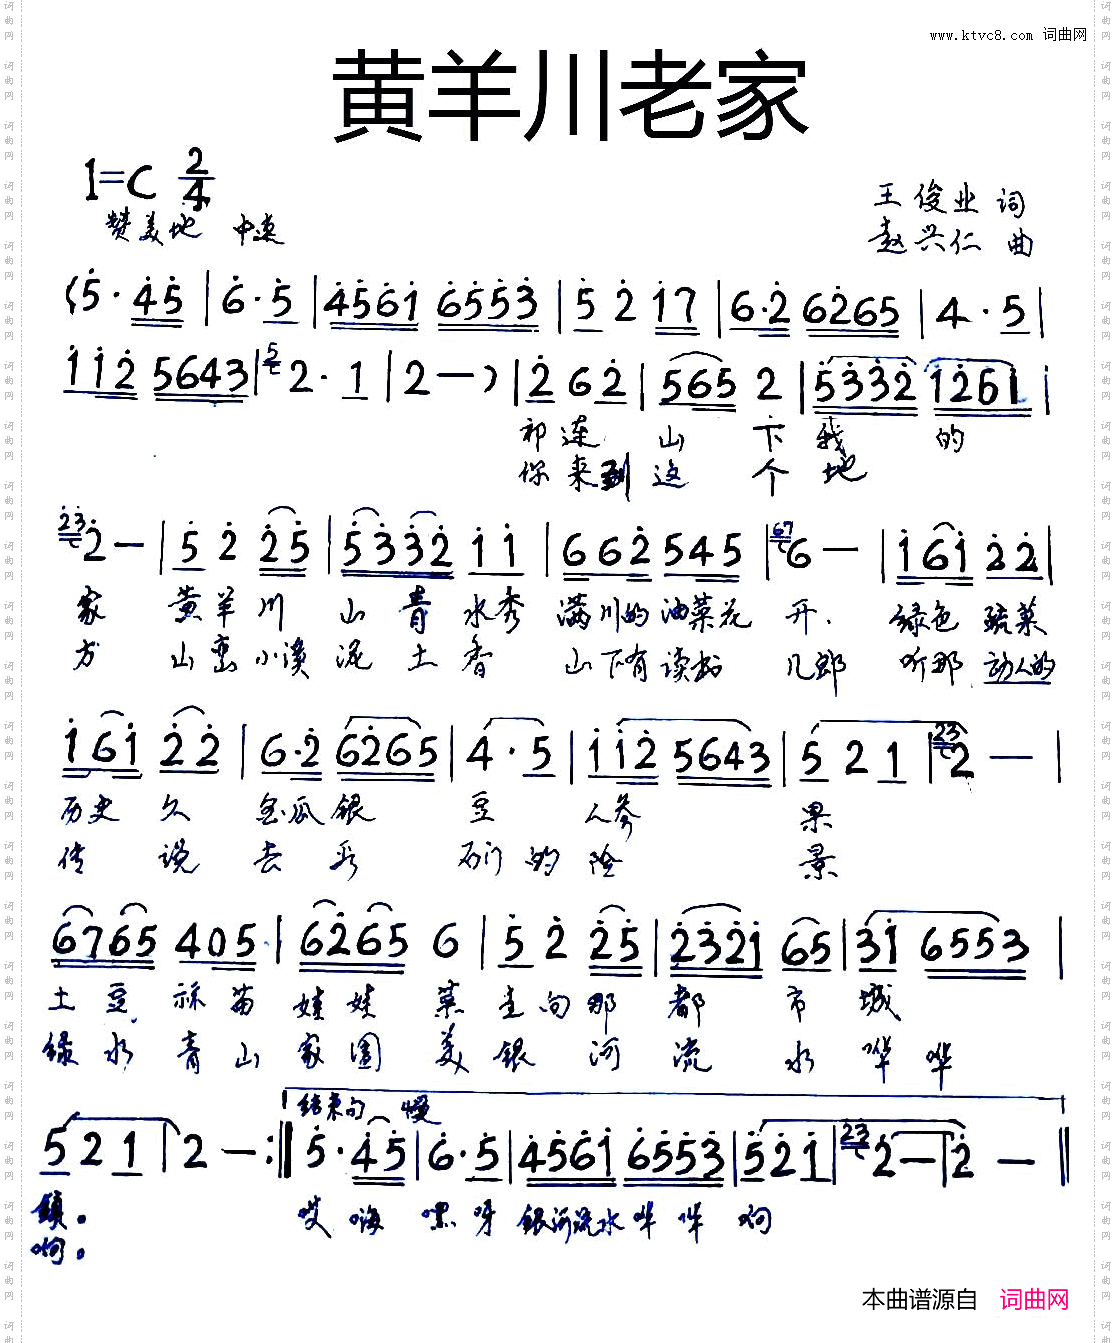 www.ktvc8.com 词曲网
黄羊川老家
1=C 2/4
王俊业 词
赞美地 中速
赵兴仁 曲
(5·45|6·5|4561 6553|5 2 17|6·2 6265|4·5|
112 5643|5 2·1|2—)|2 6 2|565 2|5332 1261|
祁连 山 下 我 的
你来到这 个 地
23 2—|5 2 25|5332 1 1|662 545|67 6—|161 22|
家 黄羊川 山青水秀 满川的油菜花 开. 绿色 蔬菜
方 山峦小溪 泥土香 山下有读书 儿郎 听那 动人的
161 22|6·2 6265|4·5|112 5643|5 2 1|23 2—|
历史 久 金瓜银 豆 人参 果
传 说 去看 石门的险 景
6765 405|6265 6|5 2 25|2321 65|31 6553|
土豆 苗 娃娃 菜 走向那 都 市 城
绿水青山 家园 美银 河流 水 哗哗
5 2 1|2—:‖结束句 慢 5·45|6·5|4561 6553|5 2 1|23 2—|2—‖
镇。 哎 嗨 嘿呀 银河流水哗哗 啊
啊。
本曲谱源自 词曲网